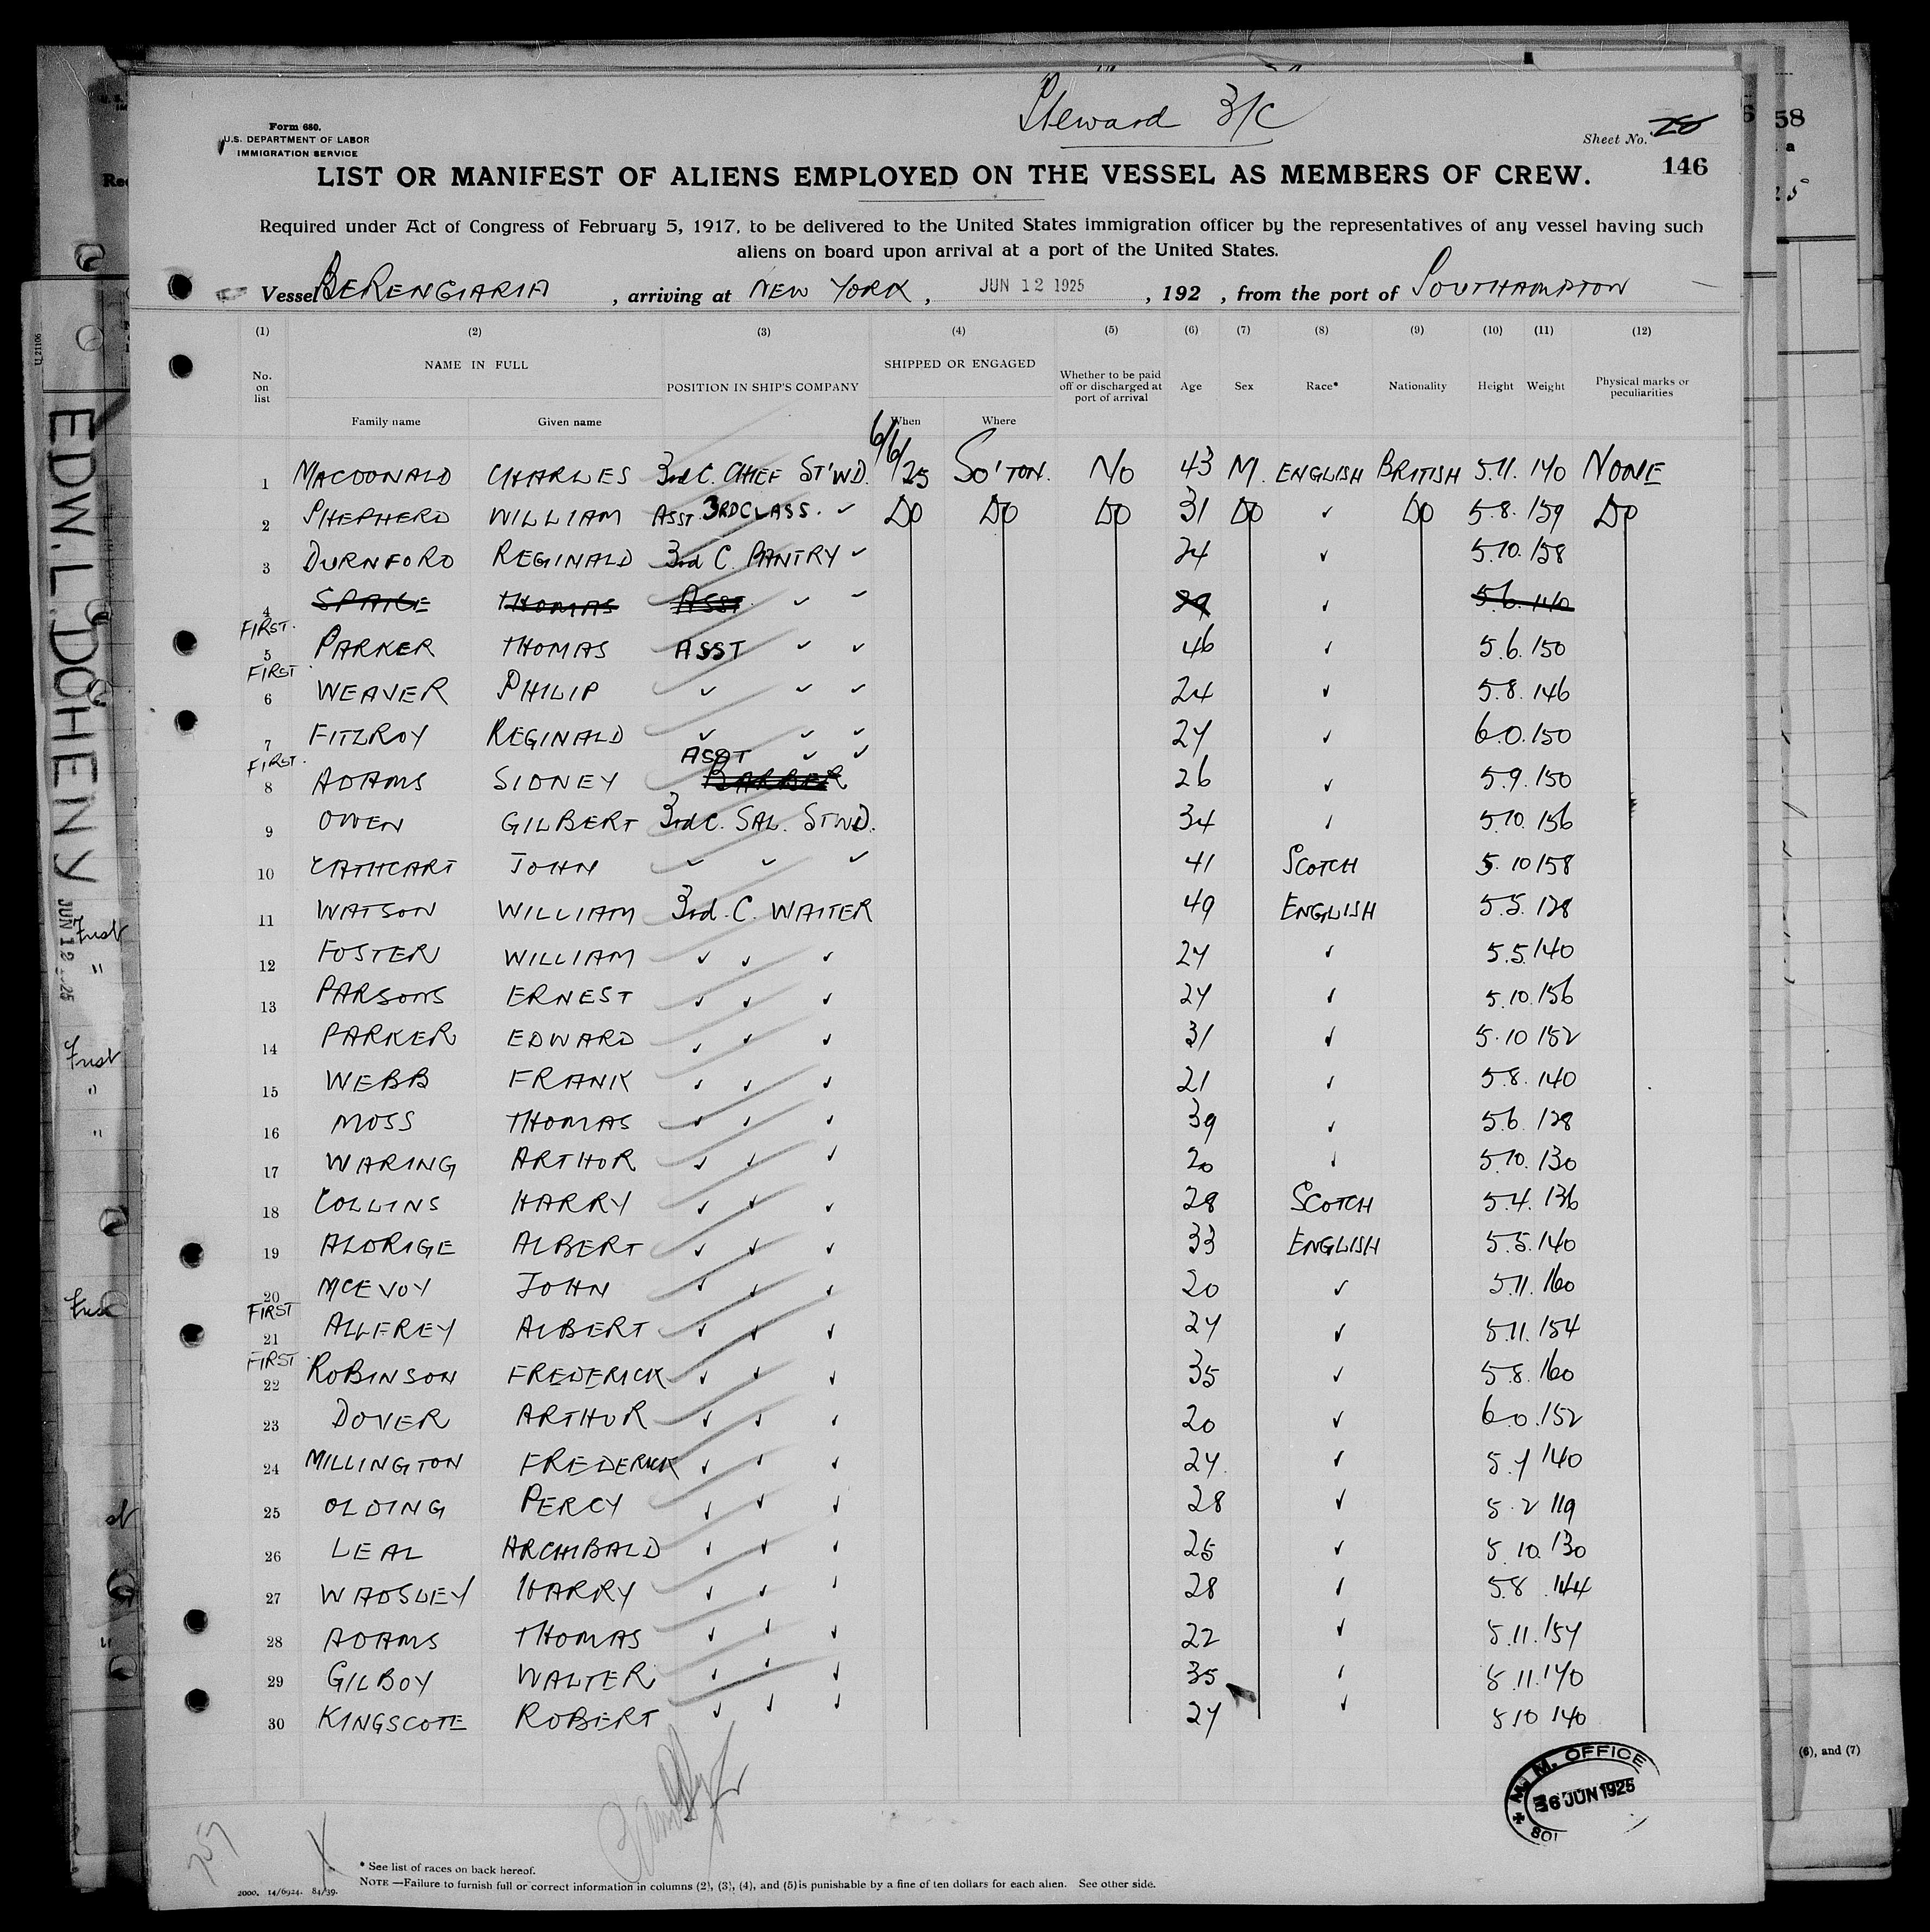 Steward 3/C
Form 680.
U.S. DEPARTMENT OF LABOR
IMMIGRATION SERVICE
Sheet No. 28
146
LIST OR MANIFEST OF ALIENS EMPLOYED ON THE VESSEL AS MEMBERS OF CREW.
Required under Act of Congress of February 5, 1917, to be delivered to the United States immigration officer by the representatives of any vessel having such
aliens on board upon arrival at a port of the United States.
Vessel BERENGARIA, arriving at NEW YORK, JUN 12 1925, 192 , from the port of SOUTHAMPTON
(1) (2) (3) (4) (5) (6) (7) (8) (9) (10) (11) (12)
No. on list NAME IN FULL Family name Given name POSITION IN SHIP'S COMPANY SHIPPED OR ENGAGED When Where Whether to be paid off or discharged at port of arrival Age Sex Race* Nationality Height Weight Physical marks or peculiarities
1 MACDONALD CHARLES 3rd C. CHIEF ST'WD. 6/6/25 SO'TON. NO 43 M. ENGLISH BRITISH 5.11. 140 NONE
2 SHEPHERD WILLIAM ASST 3RD CLASS. ✓ DO DO DO 31 DO ✓ DO 5.8. 159 DO
3 DURNFORD REGINALD 3rd C. PANTRY ✓ 24 ✓ 5.10. 158
4 THOMAS ASST. ✓ ✓ 29 ✓ 5.6. 140
FIRST.
5 PARKER THOMAS ASST ✓ ✓ 46 ✓ 5.6. 150
FIRST
6 WEAVER PHILIP ✓ ✓ ✓ 24 ✓ 5.8. 146
7 FITZROY REGINALD ✓ ✓ ✓ 27 ✓ 6.0. 150
FIRST. ASST ✓ ✓
8 ADAMS SIDNEY BARBER 26 ✓ 5.9. 150
9 OWEN GILBERT 3rd C. SAL. STWD. 34 ✓ 5.10. 156
10 CATHCART JOHN ✓ ✓ ✓ 41 SCOTCH 5.10 158
11 WATSON WILLIAM 3rd. C. WAITER 49 ENGLISH 5.5. 128
12 FOSTER WILLIAM ✓ ✓ ✓ 27 ✓ 5.5. 140
13 PARSONS ERNEST ✓ ✓ ✓ 27 ✓ 5.10. 156
14 PARKER EDWARD ✓ ✓ ✓ 31 ✓ 5.10 152
15 WEBB FRANK ✓ ✓ ✓ 21 ✓ 5.8. 140
16 MOSS THOMAS ✓ ✓ ✓ 39 ✓ 5.6. 128
17 WARING ARTHUR ✓ ✓ ✓ 20 ✓ 5.10. 130
18 COLLINS HARRY ✓ ✓ ✓ 28 SCOTCH 5.4. 136
19 ALDRIGE ALBERT ✓ ✓ ✓ 33 ENGLISH 5.5. 140
20 MCEVOY JOHN ✓ ✓ ✓ 20 ✓ 5.11. 160
FIRST
21 ALLFREY ALBERT ✓ ✓ ✓ 27 ✓ 5.11. 154
FIRST
22 ROBINSON FREDERICK ✓ ✓ ✓ 35 ✓ 5.8. 160
23 DOVER ARTHUR ✓ ✓ ✓ 20 ✓ 6.0. 152
24 MILLINGTON FREDERICK ✓ ✓ ✓ 27. ✓ 5.7 140
25 OLDING PERCY ✓ ✓ ✓ 28 ✓ 5.2 119
26 LEAL ARCHIBALD ✓ ✓ ✓ 25 ✓ 5.10. 130
27 WADSLEY HARRY ✓ ✓ ✓ 28 ✓ 5.8 .144
28 ADAMS THOMAS ✓ ✓ ✓ 22 ✓ 5.11. 157
29 GILBOY WALTER ✓ ✓ ✓ 35 ✓ 5.11. 170
30 KINGSCOTE ROBERT ✓ ✓ ✓ 27 ✓ 5 10 140
M. M. OFFICE
6 JUN 1925
* See list of races on back hereof.
NOTE —Failure to furnish full or correct information in columns (2), (3), (4), and (5) is punishable by a fine of ten dollars for each alien. See other side.
2000. 14/6924. 84/39.
EDW. L. DOHENY
JUN 12
First
"
First
"
"
58
(6), and (7)